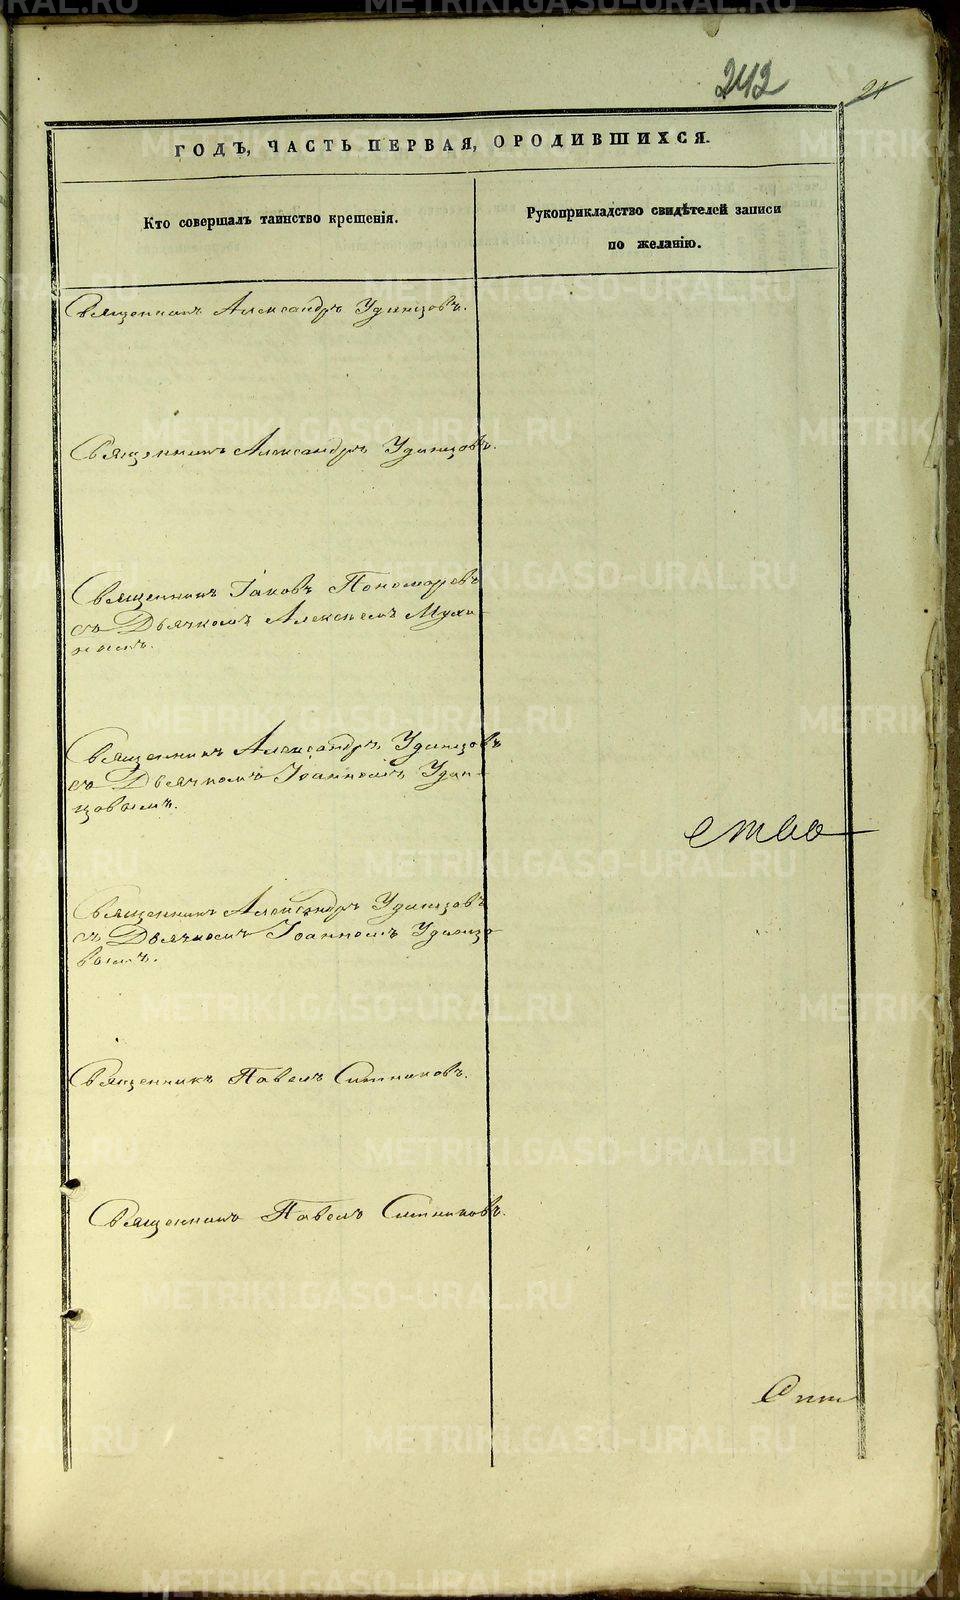 242
21
ГОДЪ, ЧАСТЬ ПЕРВАЯ, О РОДИВШИХСЯ.
Кто совершалъ таинство крещенія.
Рукоприкладство свидѣтелей записи
по желанію.
Священникъ Александръ Удинцовъ.
Священникъ Александръ Удинцовъ.
Священникъ Іаковъ Пономаревъ
съ Дьячкомъ Алексѣемъ Мухи-
нымъ.
Священникъ Александръ Удинцовъ
съ Дьячкомъ Іоанномъ Удин-
цовымъ.
ство
Священникъ Александръ Удинцовъ
съ Дьячкомъ Іоанномъ Удинцо-
вымъ.
Священникъ Павелъ Ситниковъ.
Священникъ Павелъ Ситниковъ.
METRIKI.GASO-URAL.RU